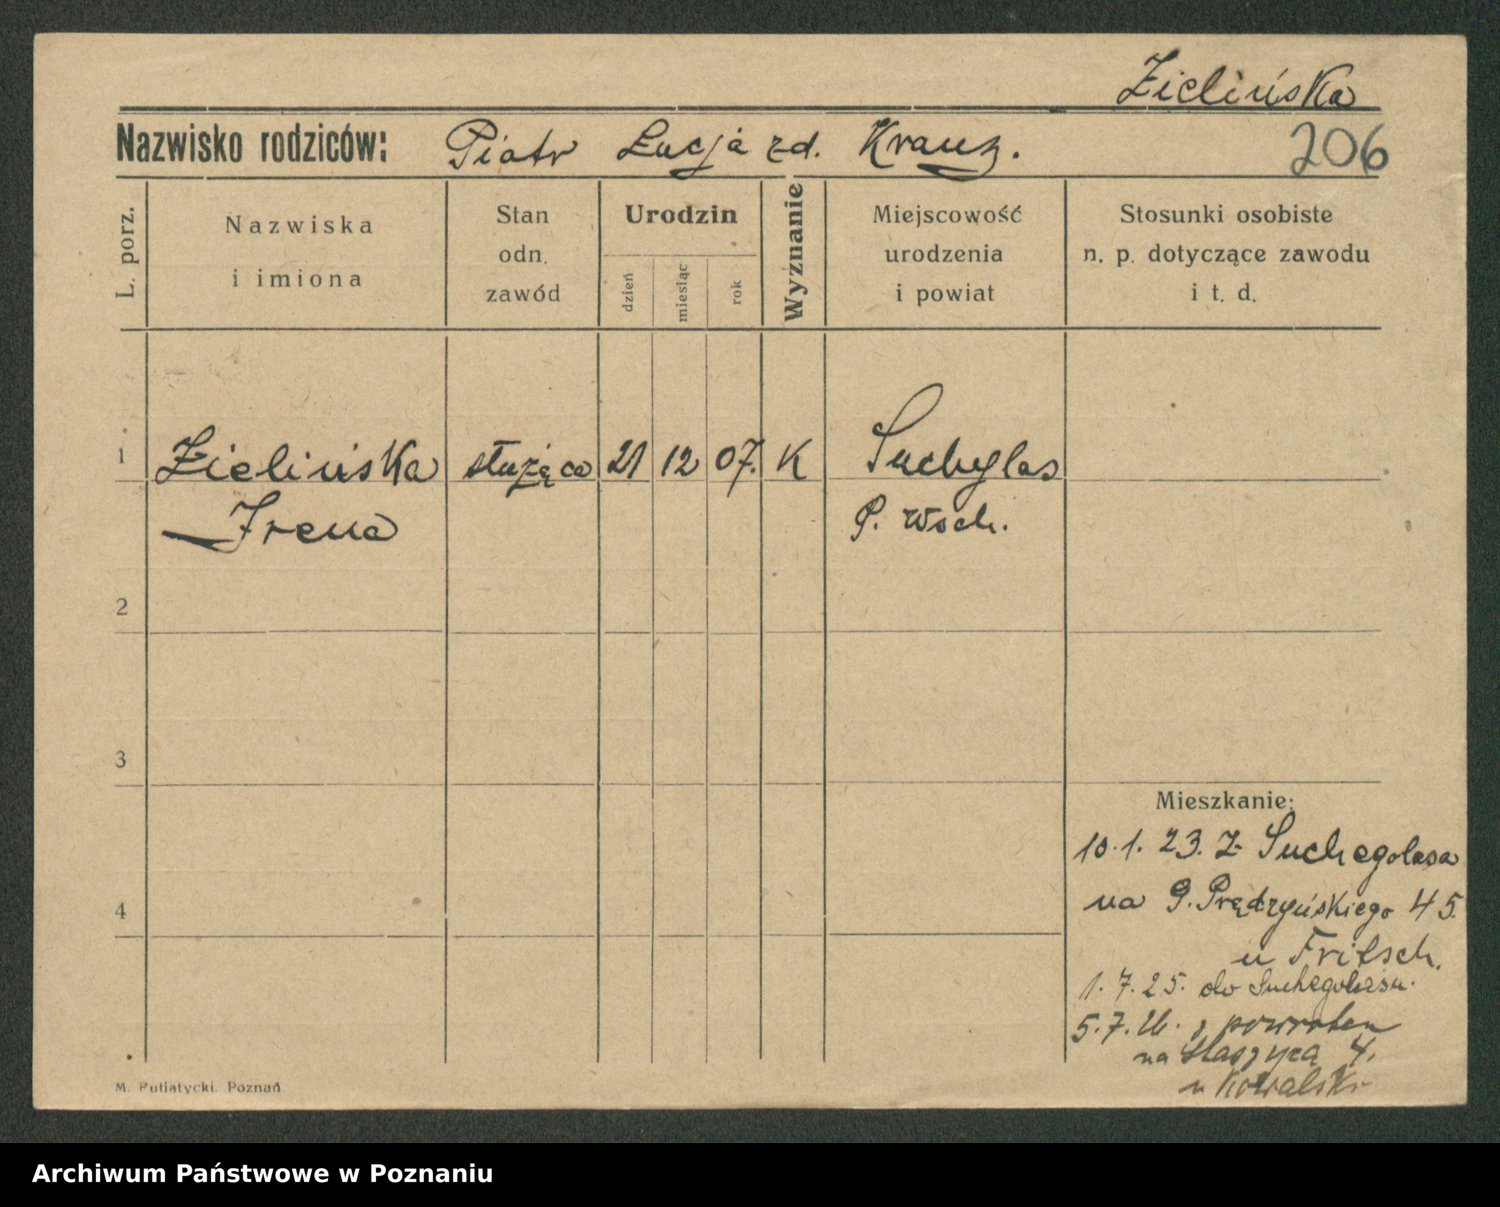 Zielińska
Nazwisko rodziców: Piotr Łucja zd. Krauz.
206
L. porz.
Nazwiska
i imiona
Stan
odn.
zawód
Urodzin
dzień
miesiąc
rok
Wyznanie
Miejscowość
urodzenia
i powiat
Stosunki osobiste
n. p. dotyczące zawodu
i t. d.
1 Zielińska służąca 21 12 07. K Suchylas
Irena P. Wsch.
2
3
Mieszkanie:
10.1.23. z Suchegolasa
4
na G. Prądzyńskiego 45.
u Fritsch.
1.7.25. do Suchegolasu.
5.7.26. z powrotem
na Staszyca 4.
u Kowalski
M. Putiatycki. Poznań
Archiwum Państwowe w Poznaniu